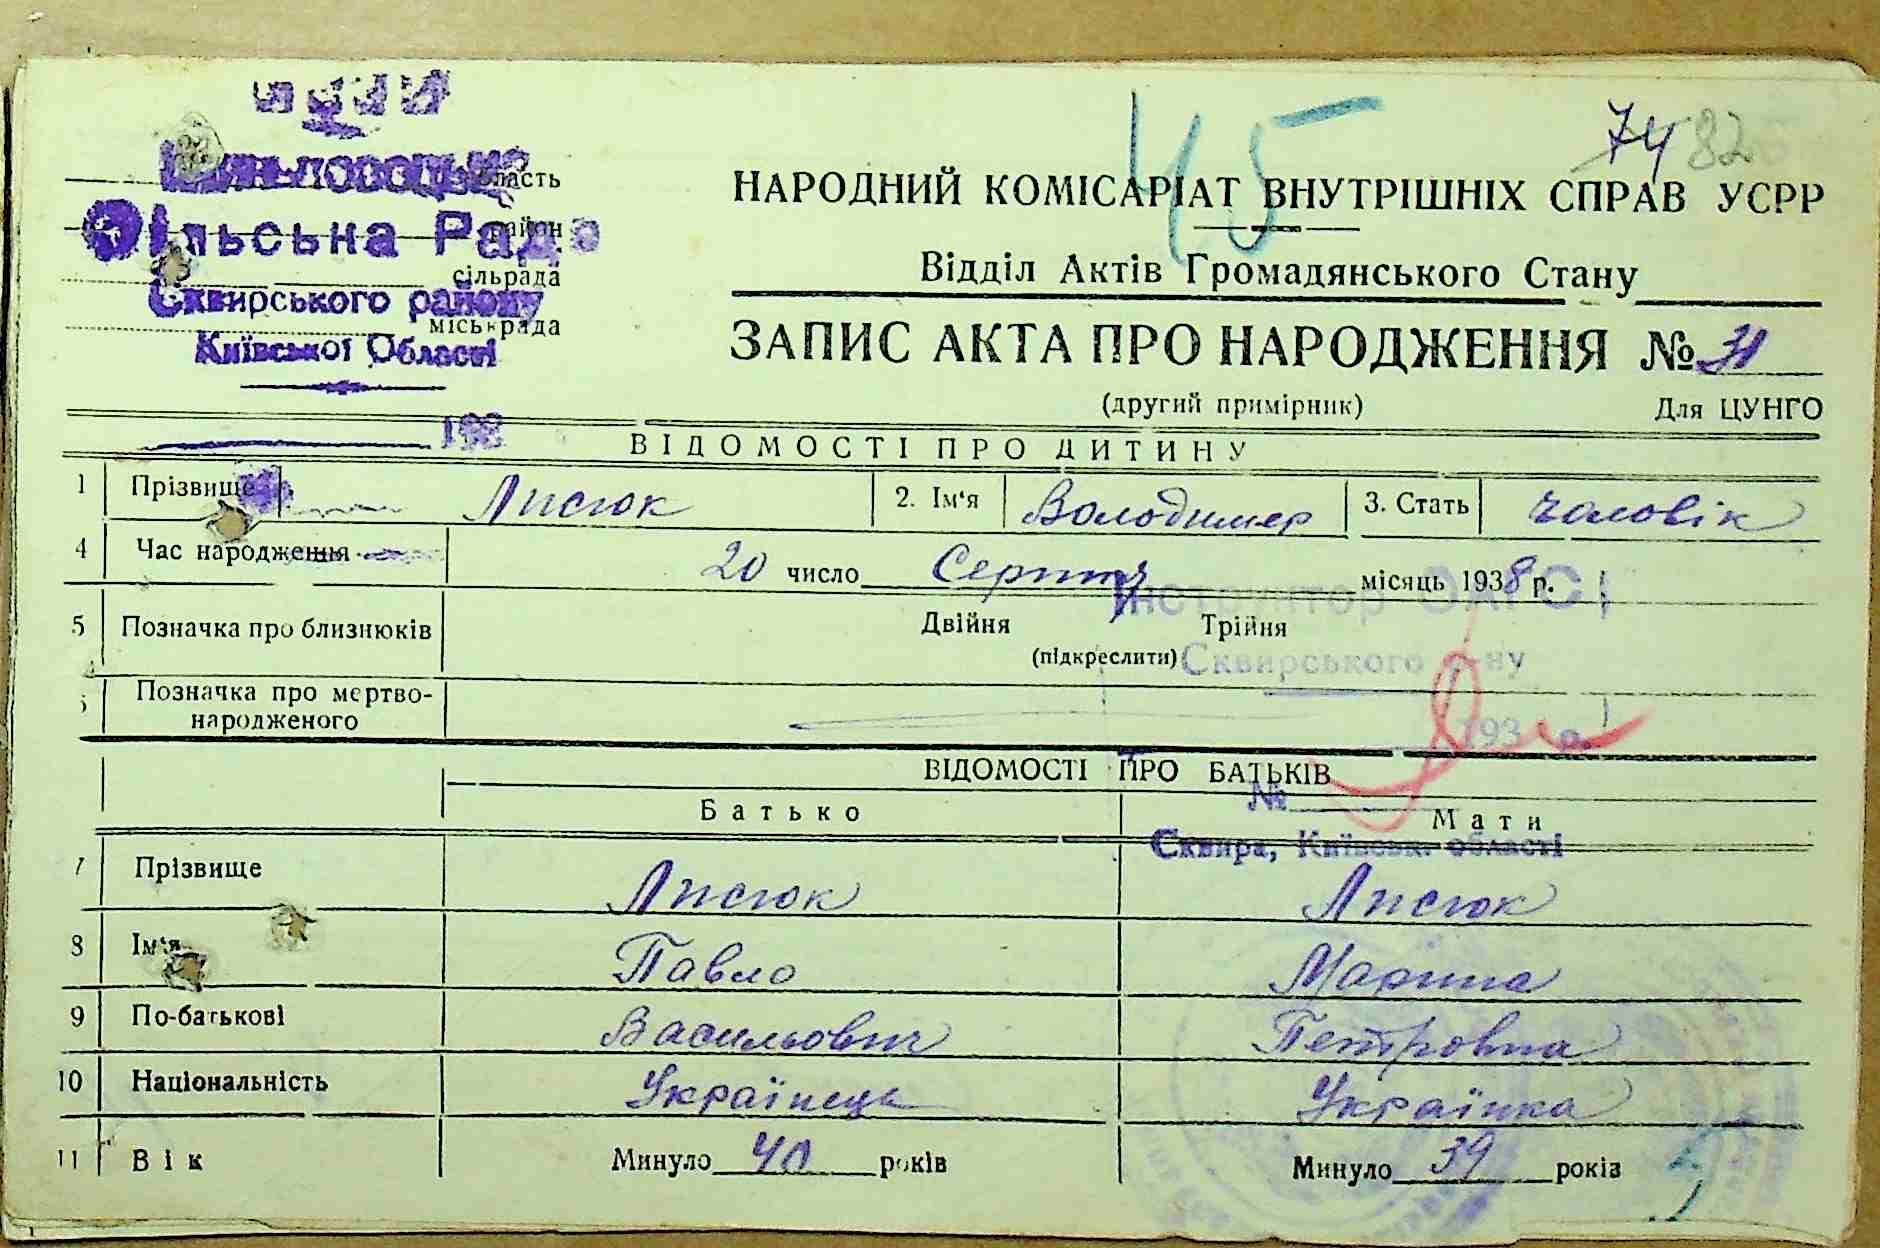 74 82
45
область
Сільська Рада
район
сільрада
Сквирського району
міськрада
Київської Області
193
НАРОДНИЙ КОМІСАРІАТ ВНУТРІШНІХ СПРАВ УСРР
Відділ Актів Громадянського Стану
ЗАПИС АКТА ПРО НАРОДЖЕННЯ № 31
(другий примірник) Для ЦУНГО
ВІДОМОСТІ ПРО ДИТИНУ
1 Прізвище Лисюк 2. Ім‘я Володимер 3. Стать чоловік
4 Час народження 20 число Серпня місяць 1938 р.
Інструктор ЗАГС
5 Позначка про близнюків Двійня Трійня
(підкреслити)
Сквирського р-ну
Позначка про мертво-
народженого
193 р.
ВІДОМОСТІ ПРО БАТЬКІВ
№
Батько Мати
Сквира, Київськ. області
7 Прізвище Лисюк Лисюк
8 Ім‘я Павло Марина
9 По-батькові Васильович Петровна
10 Національність Українець Українка
11 Вік Минуло 40 років Минуло 39 років